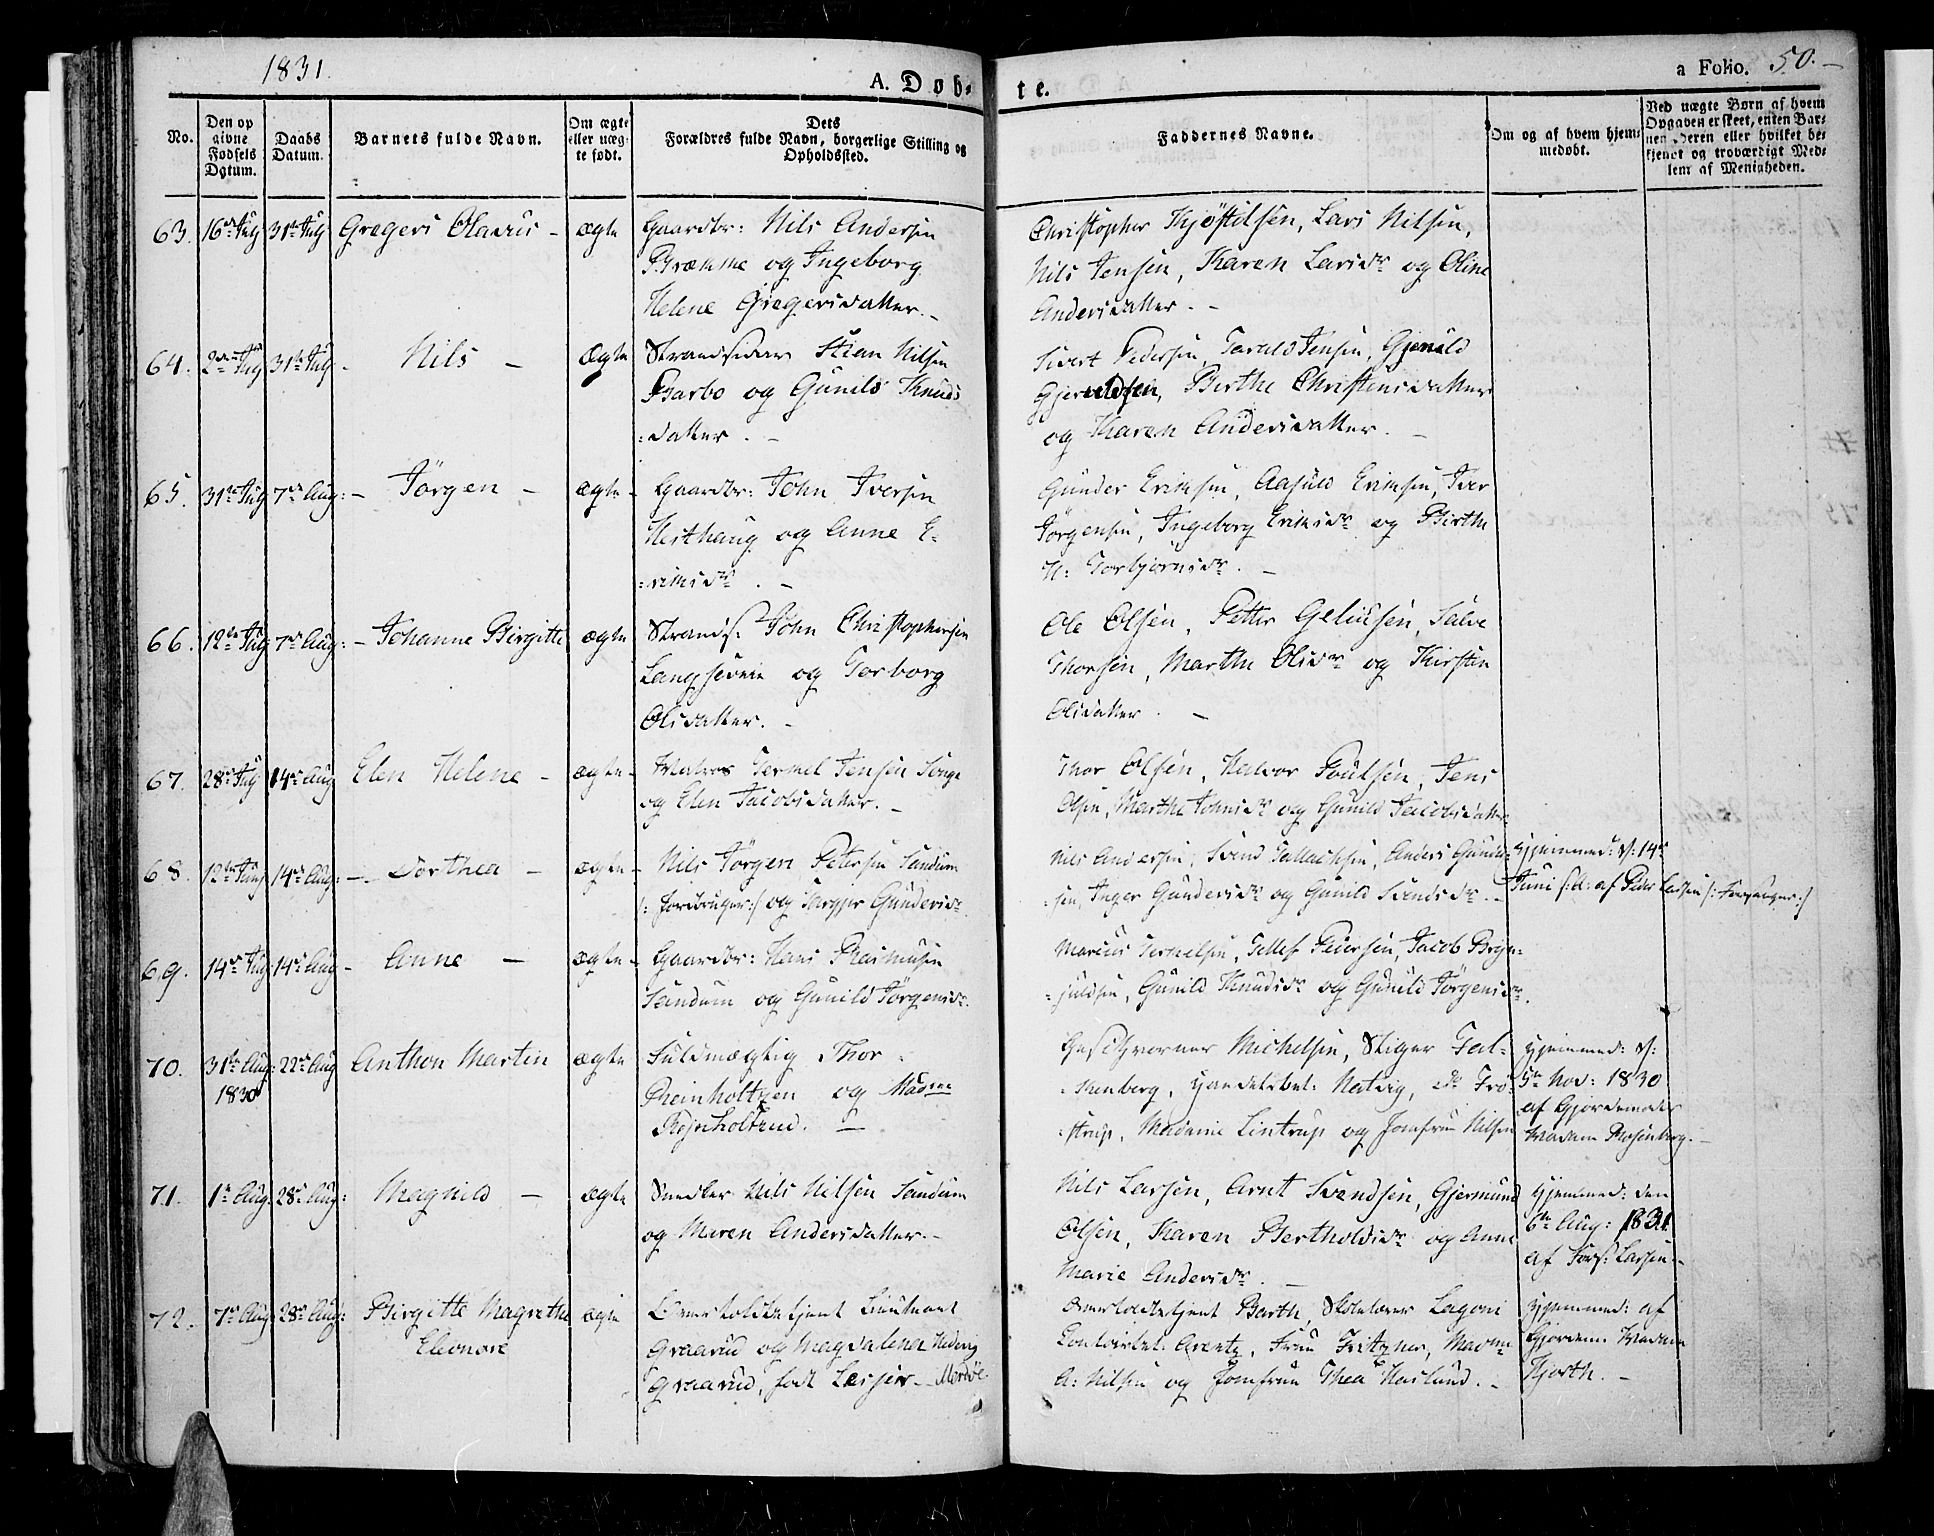 1831.
A. Døb-
te.
a Folio. 50.
No.
Den op
givne
Fødsels
Datum.
Daabs
Datum.
Barnets fulde Navn.
Om ægte
eller uæg-
te født.
Dets
Forældres fulde Navn, borgerlige Stilling og
Opholdssted.
Faddernes Navne.
Om og af hvem hjem-
medøbt.
Ved uægte Børn af hvem
Opgaven er skeet, enten Bar-
nets Fader eller hvilket be-
kjendt og troværdigt Med-
lem af Menigheden.
63. 16de July 31te July Gregers Olavus - ægte Gaardbr: Nils Andersen
Brække og Ingeborg
Helene Gregersdatter. -
Christopher Kjøstilsen, Lars Nilsen,
Nils Jensen, Karen Larsdr og Oline
Andersdatter. -
64. 2den July 31te July - Nils - ægte Strandsidder Stian Nilsen
Barbo og Gunild Knuds
:datter. -
Sivert Pedersen, Tarald Jensen, Gjeruld
Gjeruldsen, Birthe Christensdatter
og Karen Andersdatter. -
65. 31te July 7de Aug: - Jörgen - ægte - Gaardbr: John Iversen
Hesthaug og Anne E-
:riksdr. -
Gunder Eriksen, Aasuld Eriksen, Iver
Jörgensen, Ingeborg Eriksdr og Birthe
K: Torbjörnsdr. -
66. 12te July 7de Aug: - Johanne Birgitte ægte Strands: John Christophersen
Langsevnie og Torborg
Olsdatter. -
Ole Olsen, Petter Geliusen, Salve
Thorsen, Marthe Olsdr og Kirsten
Olsdatter. -
67. 28de July 14de Aug Elen Helene - ægte - Matros Terkel Jensen Songe
og Elen Jacobsdatter. -
Thor Olsen, Halvor Poulsen, Jens
Olsen, Marthe Johnsdr og Gunild Jacobsdatter
68. 12te Juny 14de Aug: - Dorthea - ægte - Nils Jörgen Petersen Sandum
/: Jordbruger :/ og Targjer Gundersdr
Nils Andersen, Svend Tallachsen, Anders Gunder-
:sen, Inger Gundersdr og Gunild Svendsdr. -
Hjemmed: d: 14de
Juni s: A: af Peder Ladsen /: Forsanger :/
69. 14de July 14de Aug - Anne - ægte - Gaardbr: Hans Rasmusen
Sandum og Gunild Jörgensdr.
Marcus Terkelsen, Tellef Pedersen, Jacob Bryn-
:juldsen, Gunild Knudsdr og Gunild Jörgensdr.
70. 31te Aug: 22de Aug Anthon Martin ægte Fuldmægtig Thor
1830
Reinholtzen og Madme
Rejnholtrud. -
Geschworner Michelsen, Stiger Fal-
:kenberg, Handelsbet: Natvig, do Frö-
:strup, Madame Lintrup og Jomfru Nilsen
Hjemmed: d:
5te Nov: 1830
af Gjordemoder
Madam Rosenberg. -
71. 1te Aug: 28de Aug: Magnild - ægte Snedker Nils Nilsen Sandum
og Maren Andersdatter. -
Nils Larsen, Arnt Svendsen, Gjermund
Olsen, Karen Bertholdsdr og Anne
Marie Andersdr. -
Hjemmed: den
6te Aug: 1831
af Fors: Larsen. -
72. 7de Aug: 28de Aug: Birgitte Magrethe ægte Overtoldbetjent Lieutnant
Eleonore
Graarud og Magdalena Hedevig
Graarud, födt Lassen - Merdöe.
Overtoldbetjent Barth, Skolelærer Lagoni
Contoirbet: Arentz, Frue Fritzner, Madme
A: Nilsen og Jomfrue Thea Haslund. -
Hjemmed: af
Gjordem: Madam
Hjorth. -